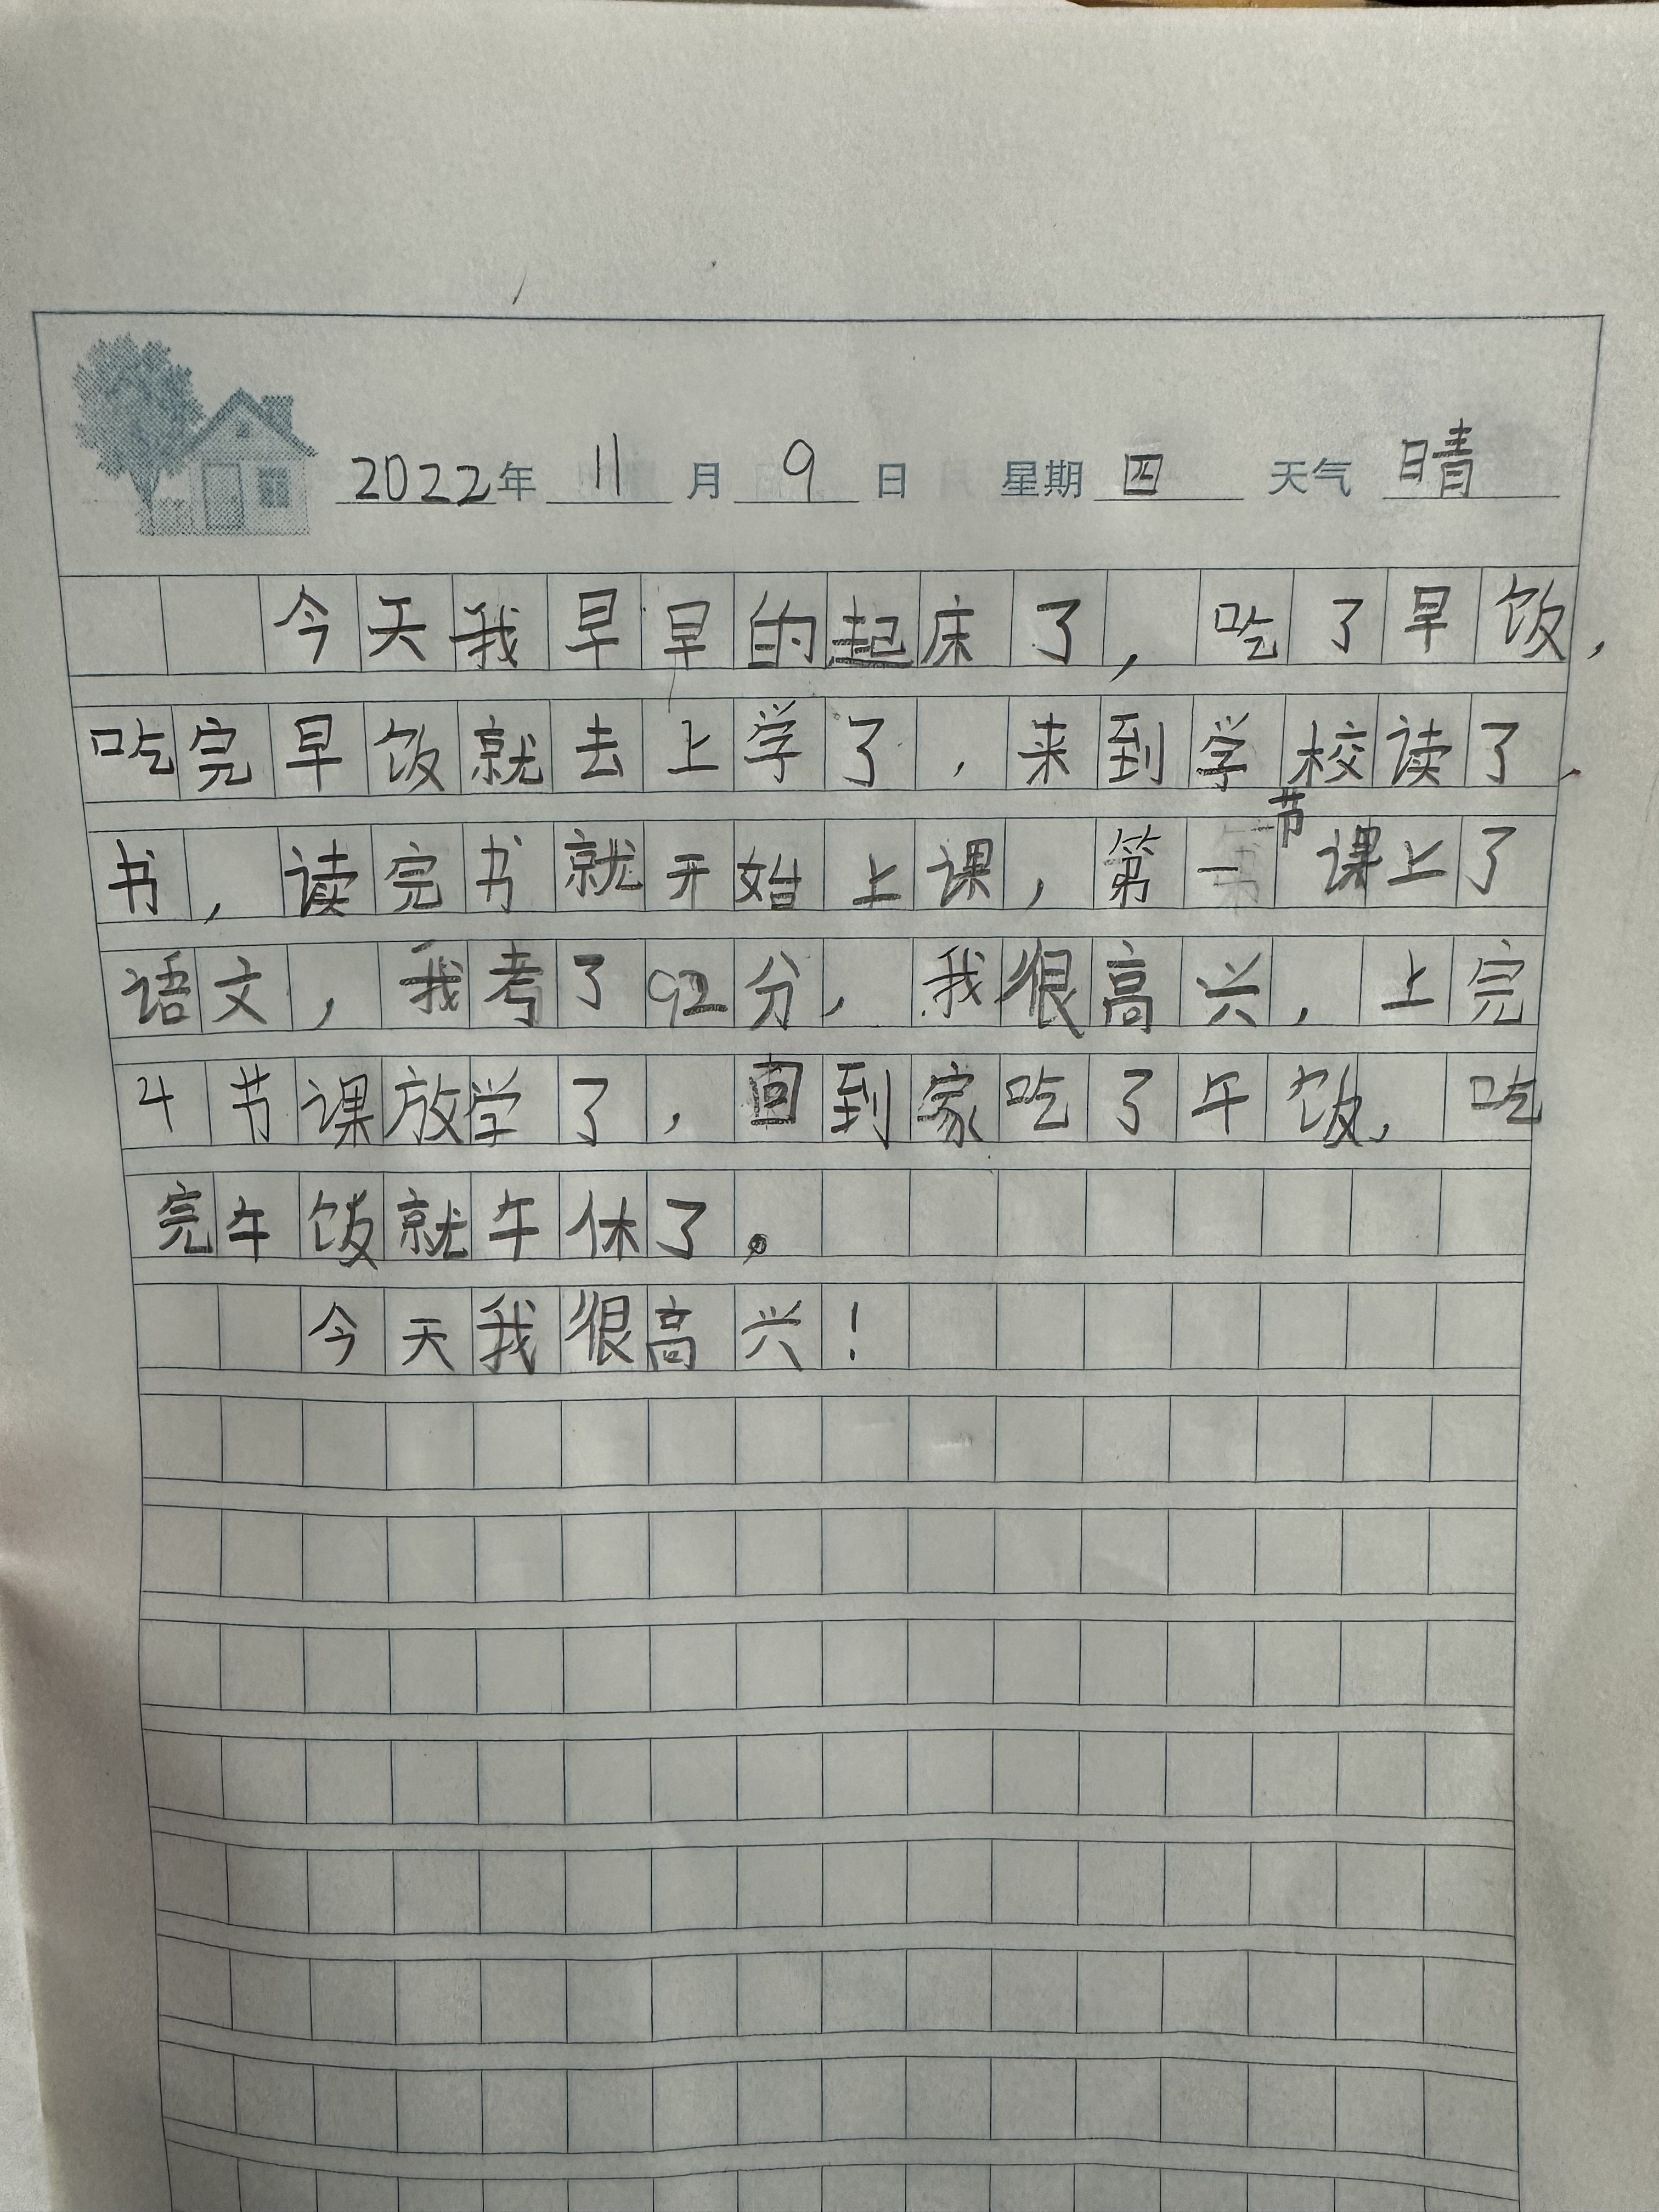 2022年 11月 9日 星期四 天气 晴
今天我早早的起床了，吃了早饭，
吃完早饭就去上学了，来到学校读了
书，读完书就开始上课，第一节课上了
语文，我考了92分，我很高兴，上完
4节课放学了，回到家吃了午饭，吃
完午饭就午休了。
今天我很高兴！